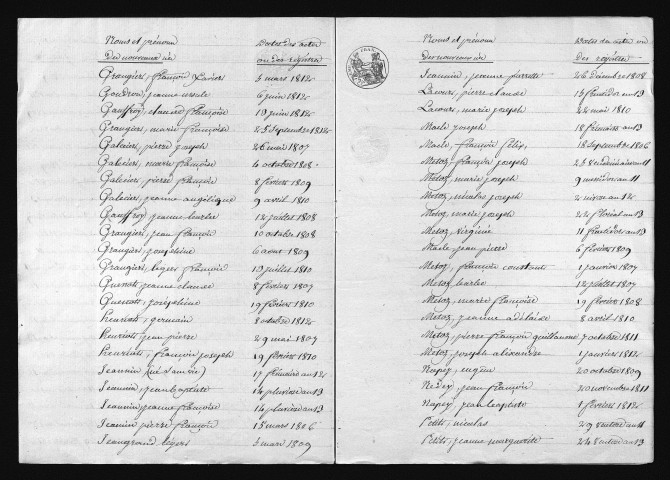 Noms et prénom Dates des actes
Des nouveaux nés ou des régistres
Grangier, françois Xavier 3 mars 1812
Goudron, jeanne ursule 6 juin 1812
Gauffroy, claude françoise 19 juin 1812
Grangier, marie françoise 25 septembre 1812
Galecier, pierre joseph 26 mai 1807
Galecier, marie françoise 4 octobre 1808
Galecier, pierre françois 8 février 1809
Galecier, jeanne angélique 9 avril 1810
Gauffroy, jeanne barbe 12 juillet 1808
Grangier, jean françois 10 octobre 1808
Grangier, joséphine 6 aout 1809
Grangier, léger françois 19 juillet 1810
Guenot, jeanne claude 8 février 1807
Guenott, joséphine 19 février 1810
henriott, germain 8 octobre 1812
henriott, jean pierre 29 mai 1807
henriott, françois joseph 19 février 1810
Jeannin 17 frimaire an 12
Jeannin, jean baptiste 14 pluviose an 13
Jeannin, jeanne françoise 14 pluviose an 13
Jeannin pierre françois 15 mars 1806
Jeangrand, léger 3 mars 1809
Noms et prénom Dates des actes ou
Des nouveaux nés des régistres
Jeannin, jeanne pierrette 26 décembre 1808
Lacour, pierre claude 15 fructidor an 13
Lacour, marie joseph 22 mai 1810
Macle joseph 18 frimaire an 13
Macle, françois félix, 18 septembre 1806
Metoz, françois joseph 28 vendémiaire an 11
Metoz, marie joseph 9 messidor an 11
Metoz, nicolas joseph 2 nivose an 12
Metoz, marie joseph 22 floréal an 13
Metoz, virginie 11 fructidor an 13
Macle, jean pierre 6 février 1809
Metoz, françois constant 1 janvier 1807
Metoz, barbe 12 juillet 1807
Metoz, marie françoise 19 février 1808
Metoz, jeanne adélaide 8 avril 1810
Metoz, pierre françois guillaume 7 octobre 1811
Metoz, joseph alexandre 1 janvier 1812
Napey, eugène 20 octobre 1809
Napey, jean françois 20 novembre 1811
Napey, jean baptiste 1 février 1812
Petit, nicolas 29 ventose an 11
Petit, jeanne marguerite 24 ventose an 13